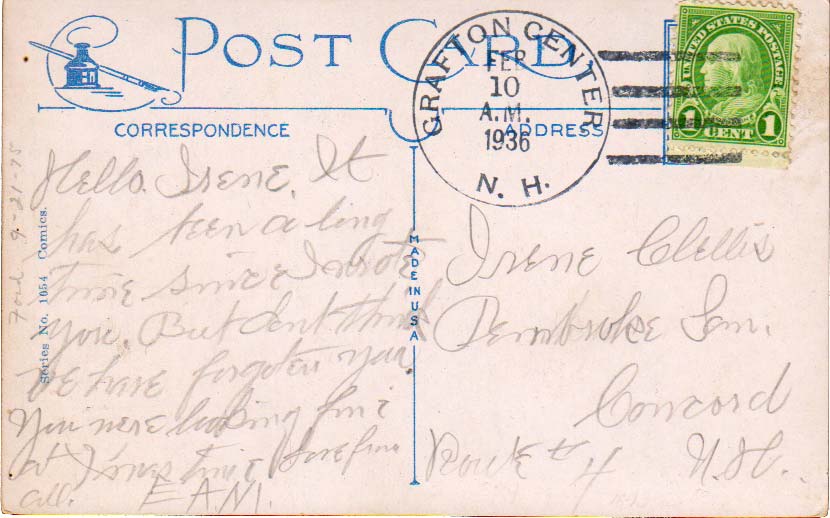 POST CARD
CORRESPONDENCE
ADDRESS
GRAFTON CENTER
FEB
10
A.M.
1936
N. H.
UNITED STATES POSTAGE
1 CENT 1
MADE IN USA
Series No. 1054 Comics.
9-21-75
Hello, Irene, It
has been a long
time since I wrote
you. But dont think
we have forgotten you.
You were looking fine
at Xmas time Love from
all. E.A.M.
Irene Clellis
Pembroke San.
Concord
Route #4 N.H.